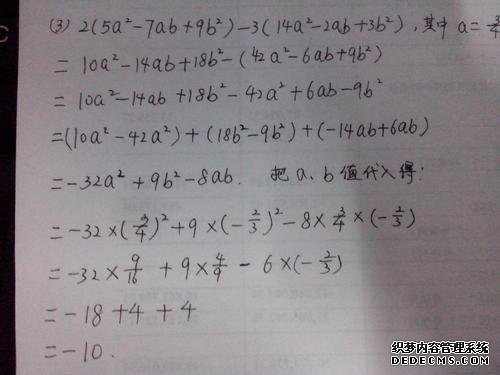 (3) 2(5a²-7ab+9b²)-3(14a²-2ab+3b²), 其中 a=3/4
= 10a²-14ab+18b²-(42a²-6ab+9b²)
= 10a²-14ab+18b²-42a²+6ab-9b²
=(10a²-42a²)+(18b²-9b²)+(-14ab+6ab)
=-32a²+9b²-8ab. 把a、b值代入得:
=-32×(3/4)²+9×(-2/3)²-8×3/4×(-2/3)
=-32×9/16+9×4/9-6×(-2/3)
=-18+4+4
=-10.
织梦内容管理系统
DEDECMS.COM